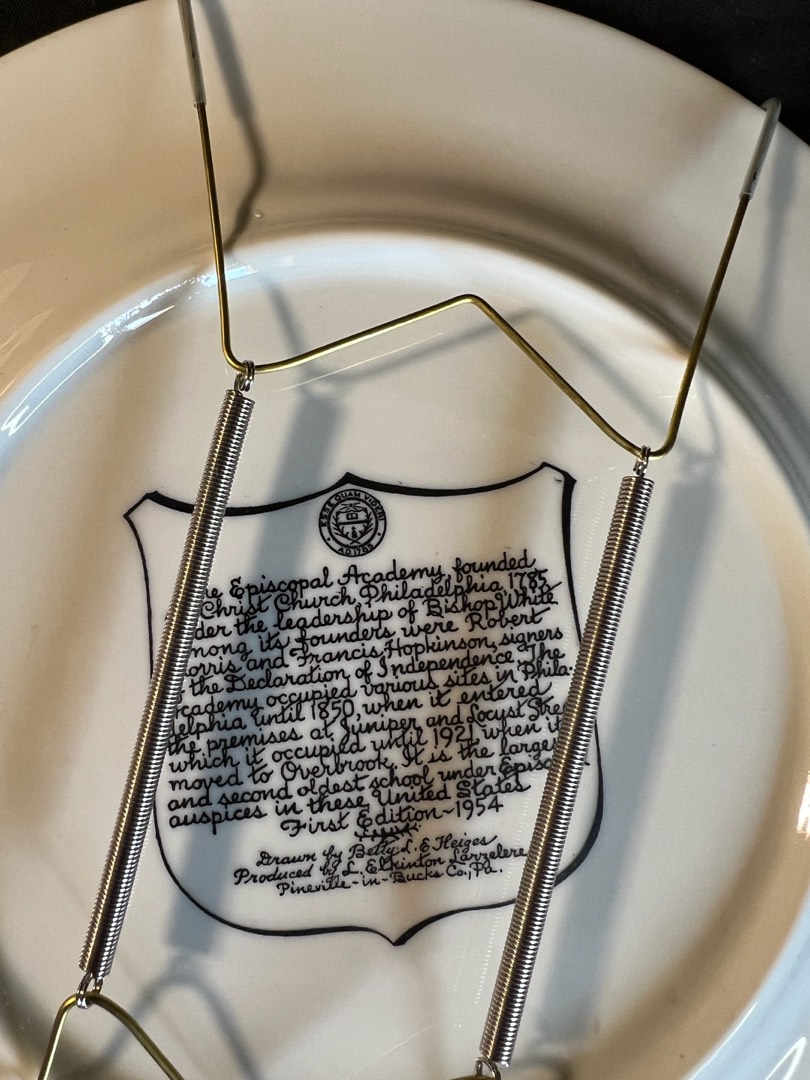 ESSE QUAM VIDERI
A.D. 1785
e Episcopal Academy, founded
Christ Church Philadelphia 1785,
der the leadership of Bishop White
mong its founders were Robert
orris and Francis Hopkinson, signers
the Declaration of Independence. The
cademy occupied various sites in Phila-
elphia until 1850, when it entered
the premises at Juniper and Locust Stre
which it occupied until 1921 when it
moved to Overbrook. It is the larges
and second oldest school under Episco
auspices in these United States
First Edition~1954
Drawn by Betty L. E. Heiges
Produced by L. Elkinton Larzelere
Pineville~in~Bucks Co., Pa.